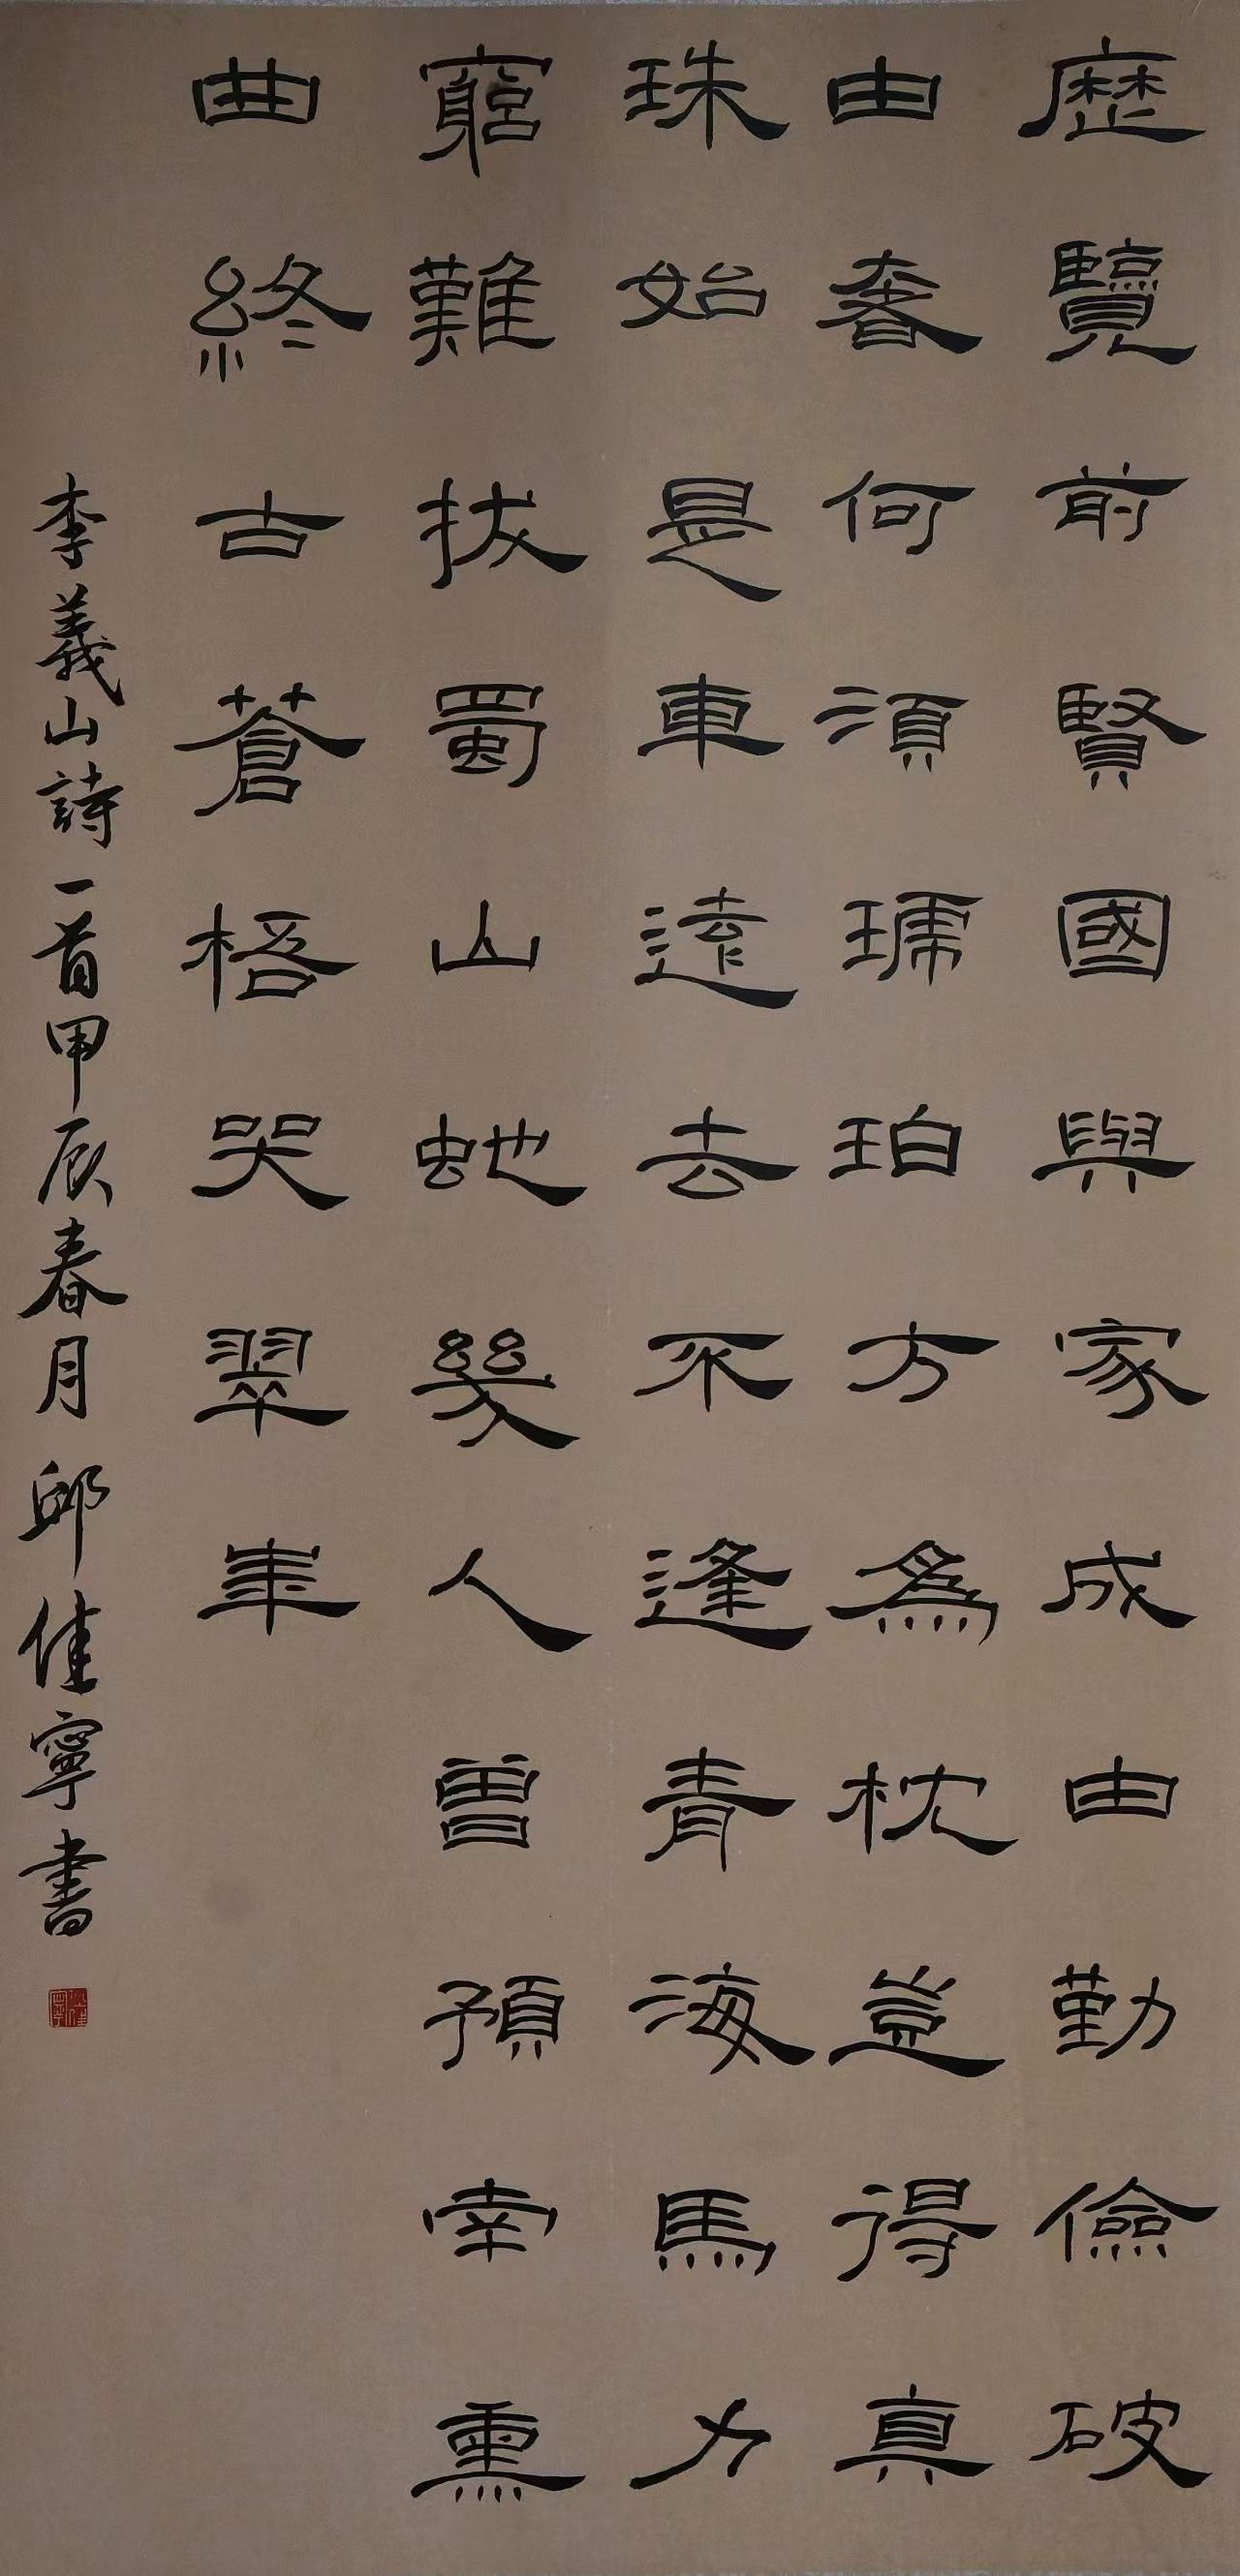 歷覽前賢國與家成由勤儉破
由奢何須琥珀方為枕豈得真
珠始是車遠去不逢青海馬力
窮難拔蜀山虵幾人曾預南熏
曲終古蒼梧哭翠華
李義山詩一首甲辰春月邱佳寧書